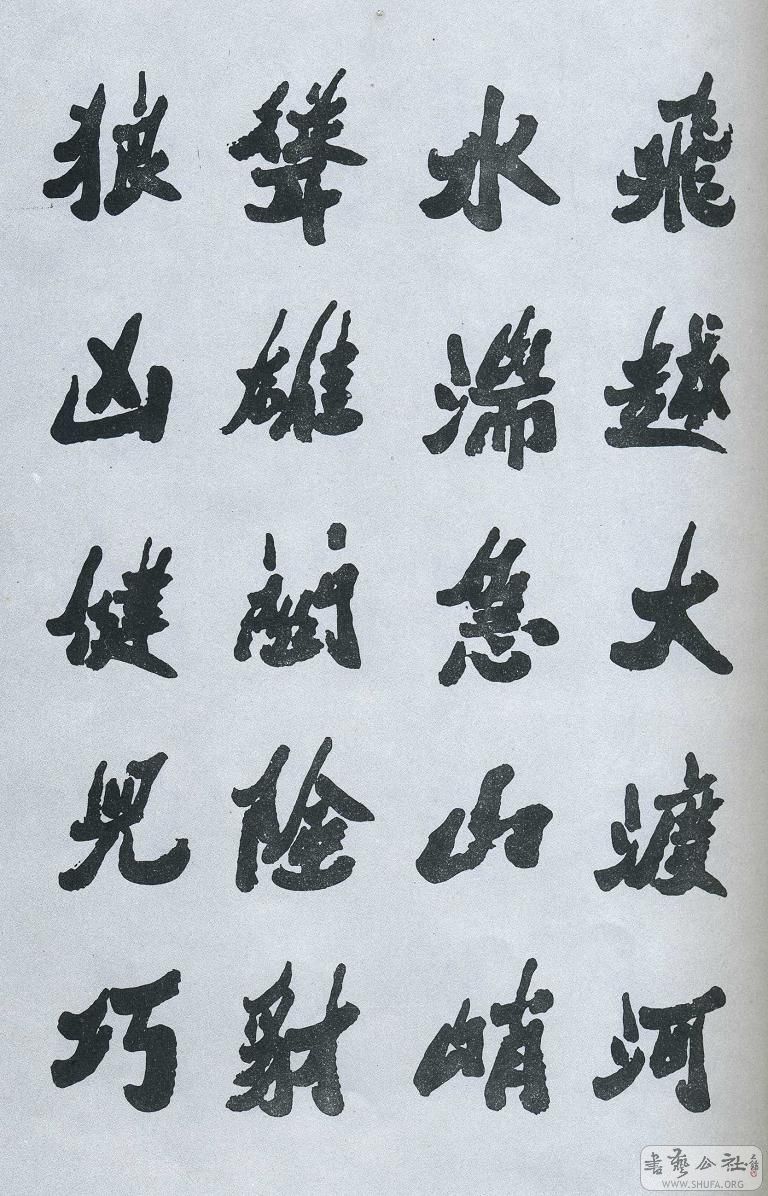 飛越大渡河
水湍急山峭
聳雄關險豺
狼凶健兒巧
書藝公社
WWW.SHUFA.ORG